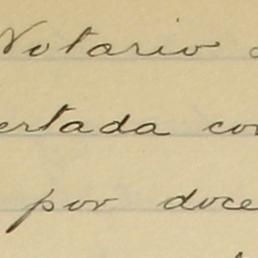 Notario
ertada con
por doce